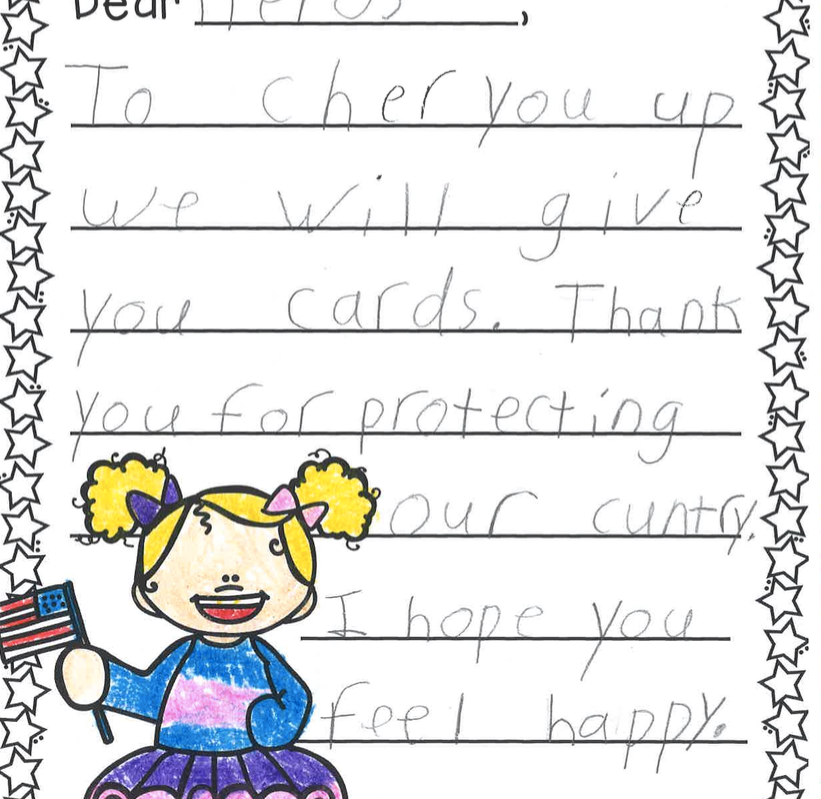 Dear Heros,
To cher you up
we will give
you cards. Thank
you for protecting
our cuntry.
I hope you
feel happy.